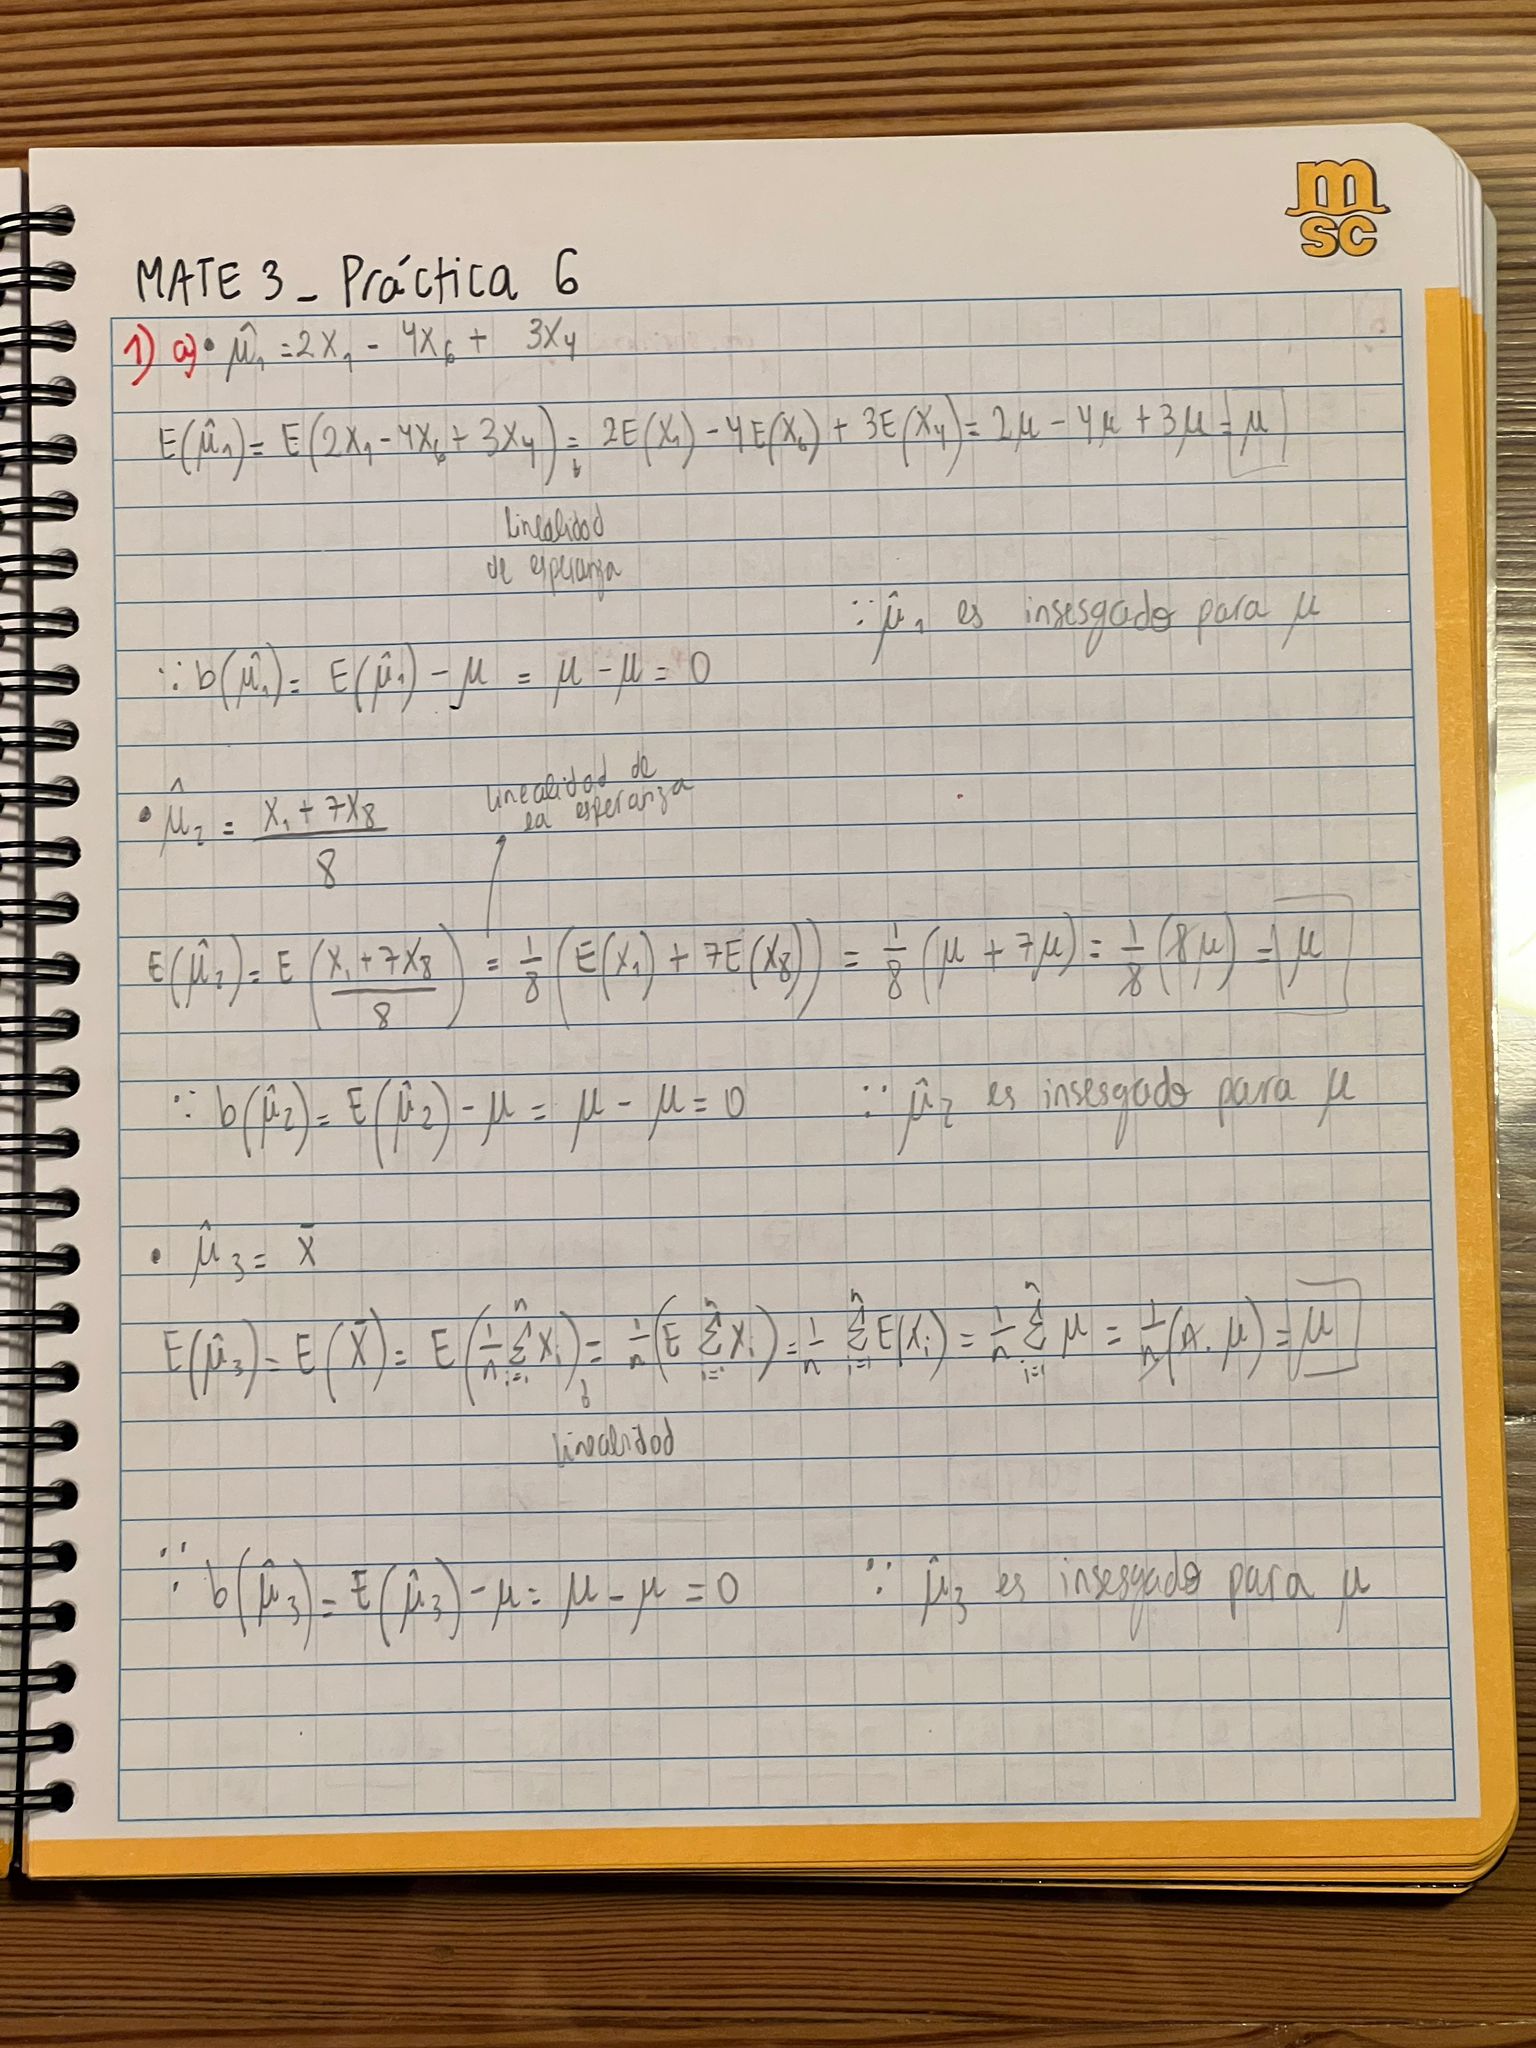 m
SC
MATE 3 - Práctica 6
1) a) • μ̂₁ = 2X₁ - 4X₆ + 3X₄
E(μ̂₁) = E(2X₁ - 4X₆ + 3X₄) = 2E(X₁) - 4E(X₆) + 3E(X₄) = 2μ - 4μ + 3μ = μ
linealidad
de esperanza
∵ μ̂₁ es insesgado para μ
∵ b(μ̂₁) = E(μ̂₁) - μ = μ - μ = 0
linealidad de
la esperanza
• μ̂₂ = (X₁ + 7X₈)/8
E(μ̂₂) = E((X₁ + 7X₈)/8) = 1/8 (E(X₁) + 7E(X₈)) = 1/8 (μ + 7μ) = 1/8 (8μ) = μ
∵ b(μ̂₂) = E(μ̂₂) - μ = μ - μ = 0 ∵ μ̂₂ es insesgado para μ
• μ̂₃ = X̄
E(μ̂₃) = E(X̄) = E(1/n Σⁿᵢ₌₁ Xᵢ) = 1/n (E Σⁿᵢ₌₁ Xᵢ) = 1/n Σⁿᵢ₌₁ E(Xᵢ) = 1/n Σⁿᵢ₌₁ μ = 1/n (n . μ) = μ
linealidad
∴ b(μ̂₃) = E(μ̂₃) - μ = μ - μ = 0 ∵ μ̂₃ es insesgado para μ